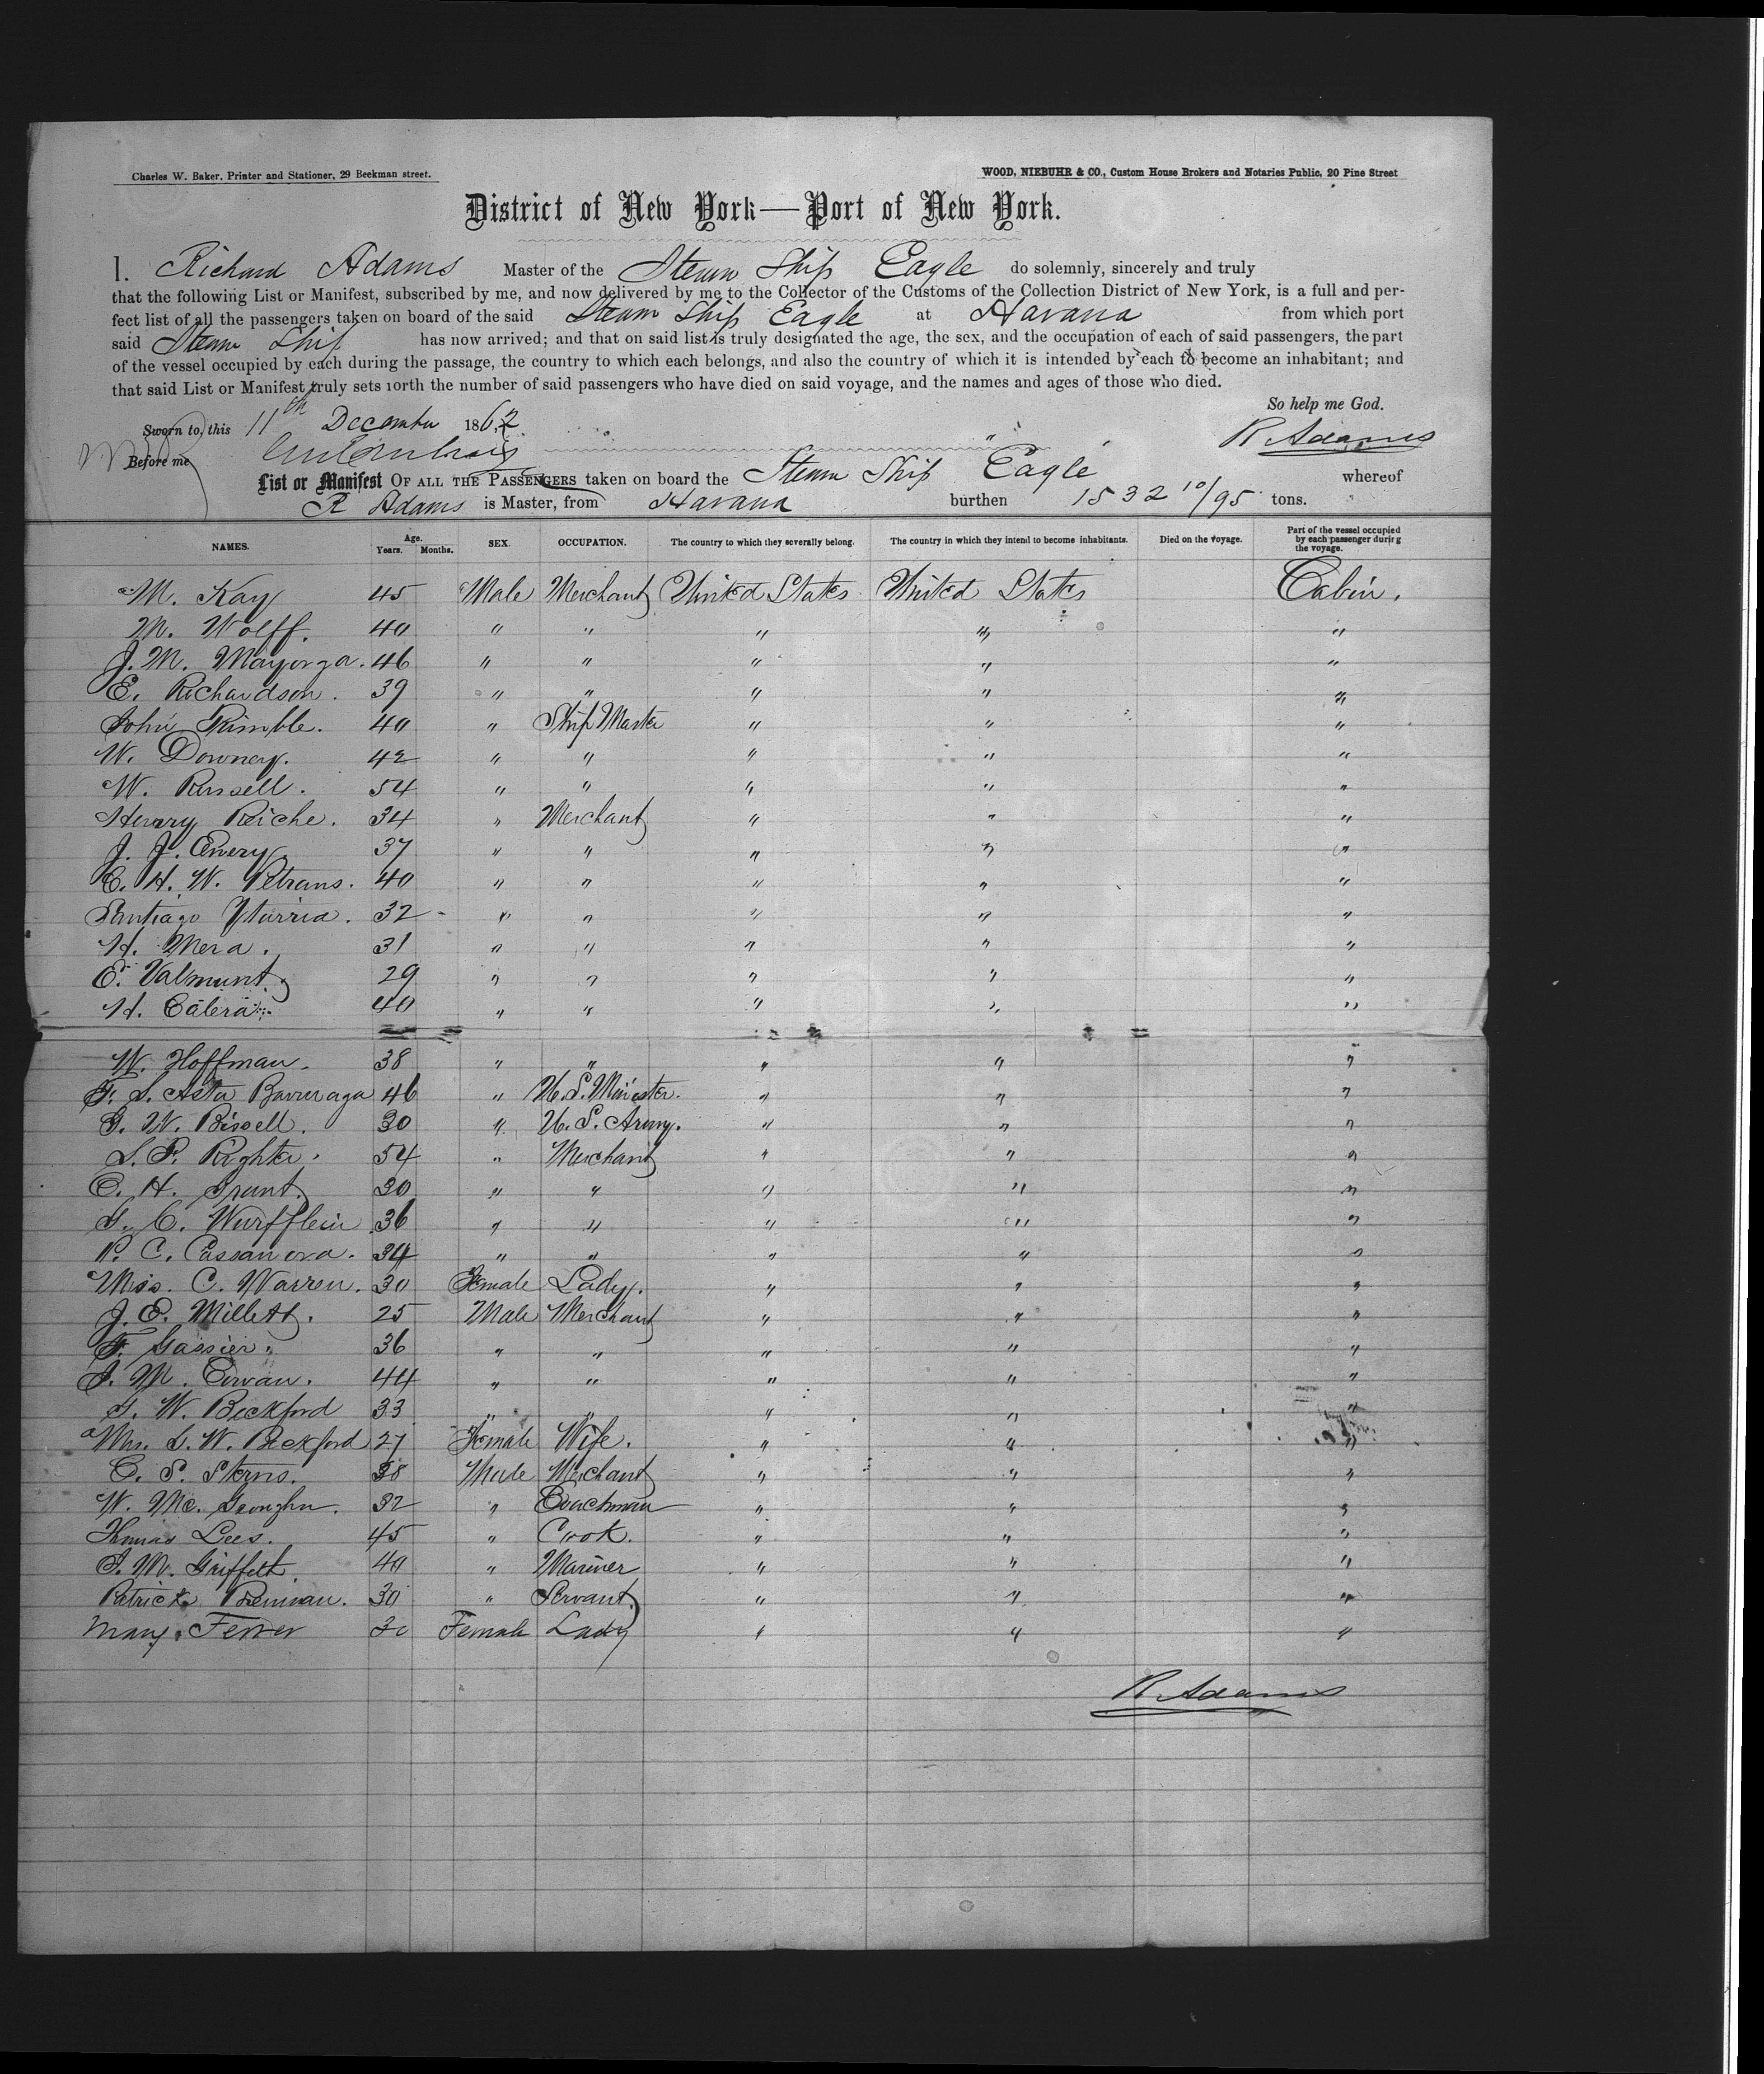 Charles W. Baker, Printer and Stationer, 29 Beekman street.
WOOD, NIEBUHR & CO., Custom House Brokers and Notaries Public, 20 Pine Street
District of New York—Port of New York.
I. Richard Adams Master of the Steam Ship Eagle do solemnly, sincerely and truly
that the following List or Manifest, subscribed by me, and now delivered by me to the Collector of the Customs of the Collection District of New York, is a full and per-
fect list of all the passengers taken on board of the said Steam Ship Eagle at Havana from which port
said Steam Ship has now arrived; and that on said list is truly designated the age, the sex, and the occupation of each of said passengers, the part
of the vessel occupied by each during the passage, the country to which each belongs, and also the country of which it is intended by each to become an inhabitant; and
that said List or Manifest truly sets forth the number of said passengers who have died on said voyage, and the names and ages of those who died.
So help me God.
Sworn to, this 11th December 1862
R Adams
Before me
List or Manifest OF ALL THE PASSENGERS taken on board the Steam Ship Eagle whereof
R Adams is Master, from Havana burthen 1532 10/95 tons.
NAMES. Age. Years. Months. SEX. OCCUPATION. The country to which they severally belong. The country in which they intend to become inhabitants. Died on the voyage. Part of the vessel occupied by each passenger during the voyage.
M. Kay 45 Male Merchant United States United States Cabin.
M. Wolff. 40 " " " " "
J. M. Mayorga. 46 " " " " "
E. Richardson. 39 " " " " "
John Kimble. 40 " Ship Master " " "
W. Downey. 42 " " " " "
W. Russell. 54 " " " " "
Henry Reiche. 34 " Merchant " " "
J. J. Emery 37 " " " " "
E. H. W. Petrans. 40 " " " " "
Santiago Yturria. 32 " " " " "
H. Mera. 31 " " " " "
E. Valmunt. 29 " " " " "
H. Calera 40 " " " " "
W. Hoffman. 38 " " " " "
F. S. Asta Buruaga 46 " U.S. Minister. " " "
G. W. Bissell. 30 " U.S. Army. " " "
S. P. Righter. 54 " Merchant " " "
C. H. Grant. 30 " " " " "
G. C. Wurfflein 36 " " " " "
P. C. Cassanova. 34 " " " " "
Miss. C. Warren. 30 Female Lady. " " "
J. E. Millett. 25 Male Merchant " " "
F. Gassier. 36 " " " " "
J. M. Cowan. 44 " " " " "
G. W. Beckford 33 " " " " "
Mrs. G. W. Beckford 27 Female Wife. " " "
C. S. Sterns. 38 Male Merchant " " "
W. Mc. Geoughn. 32 " Coachman " " "
Thomas Lees. 45 " Cook. " " "
J. M. Griffeth. 40 " Mariner " " "
Patrick Brennan. 30 " Servant. " " "
Mary Ferrer 30 Female Lady " " "
R. Adams